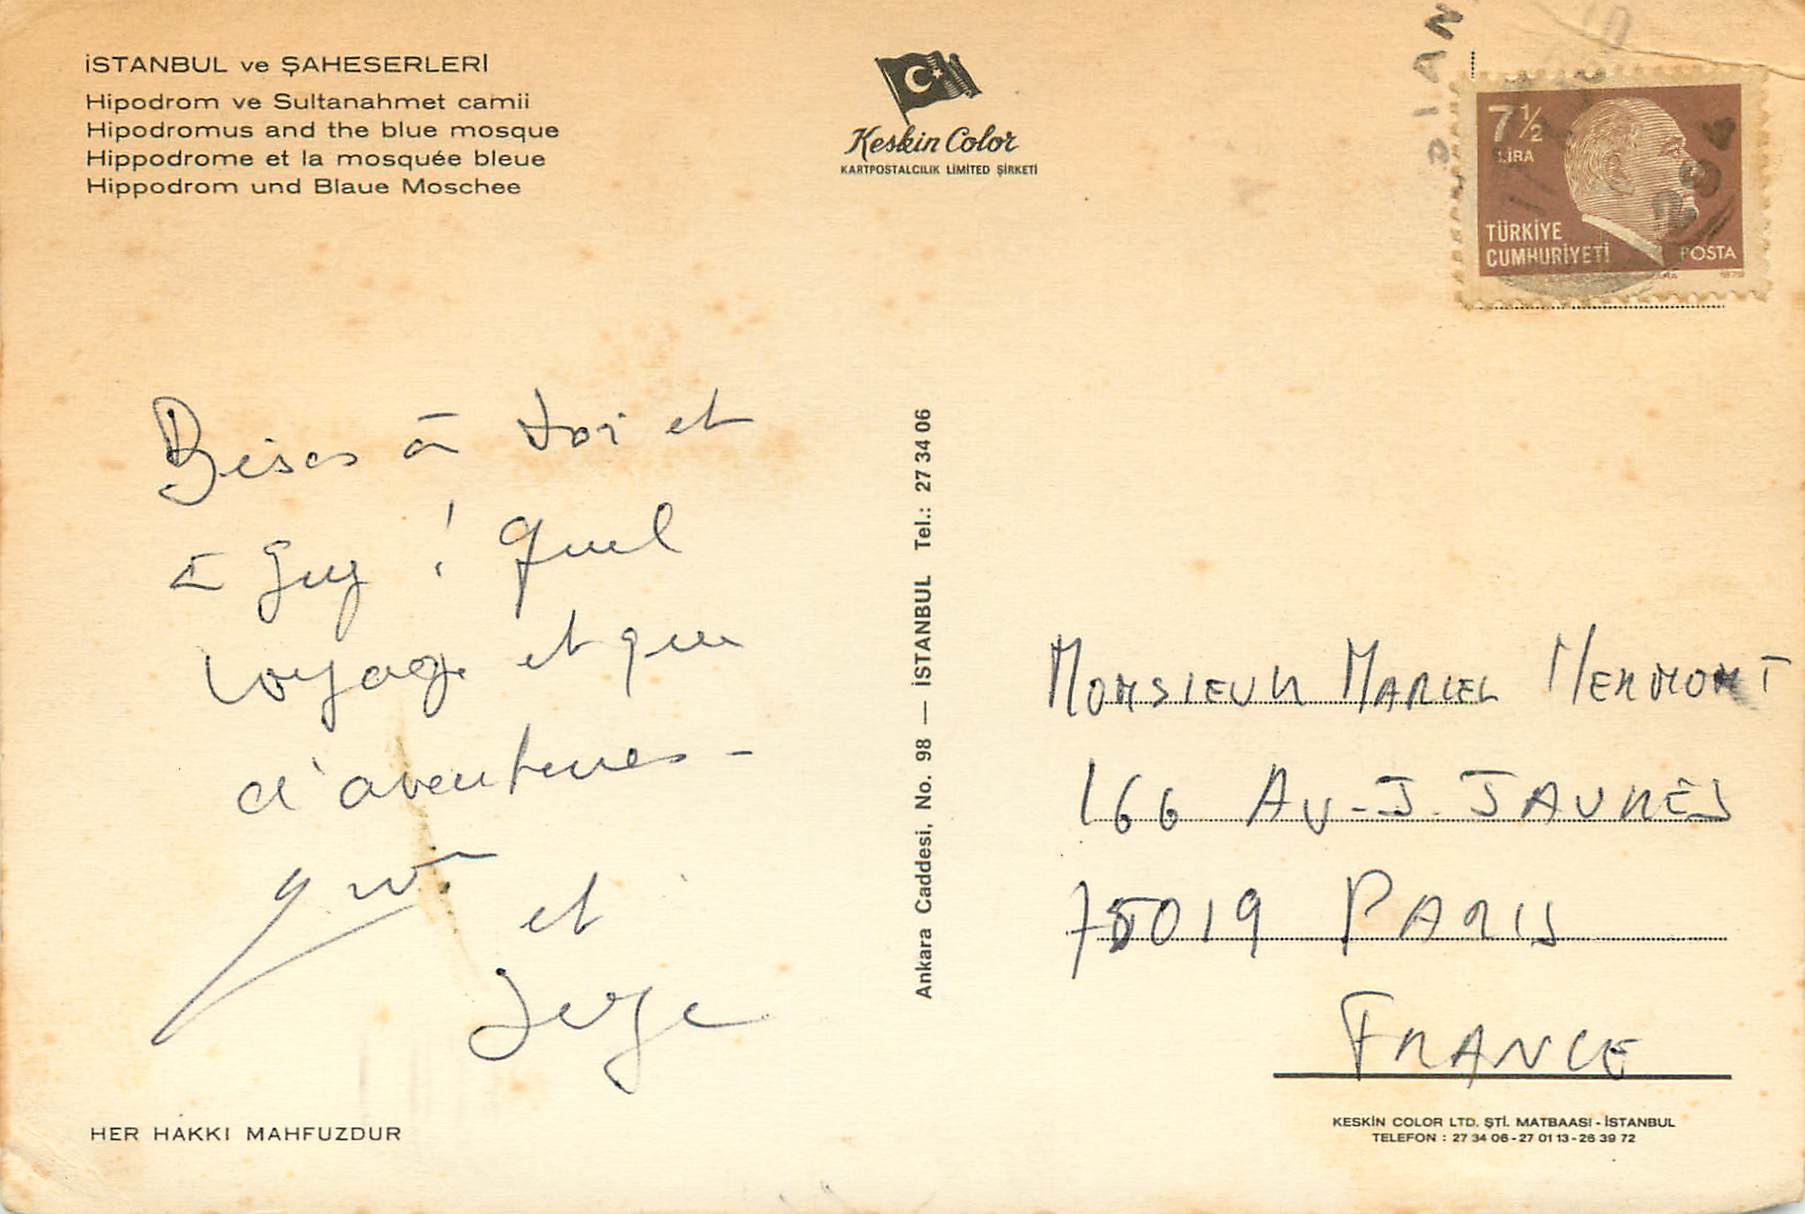 İSTANBUL ve ŞAHESERLERİ
Hipodrom ve Sultanahmet camii
Hipodromus and the blue mosque
Hippodrome et la mosquée bleue
Hippodrom und Blaue Moschee
Keskin Color
KARTPOSTALCILIK LİMİTED ŞİRKETİ
7½
LİRA
TÜRKİYE
CUMHURİYETİ
POSTA
Bises à toi et
à Guy ! Quel
voyage et que
d'aventures -
et
Serge
Ankara Caddesi, No. 98 — İSTANBUL Tel.: 27 34 06
MONSIEUR MARCEL MERMONT
166 AV. J. JAURÈS
75019 PARIS
FRANCE
HER HAKKI MAHFUZDUR
KESKİN COLOR LTD. ŞTİ. MATBAASI - İSTANBUL
TELEFON : 27 34 06 - 27 01 13 - 26 39 72